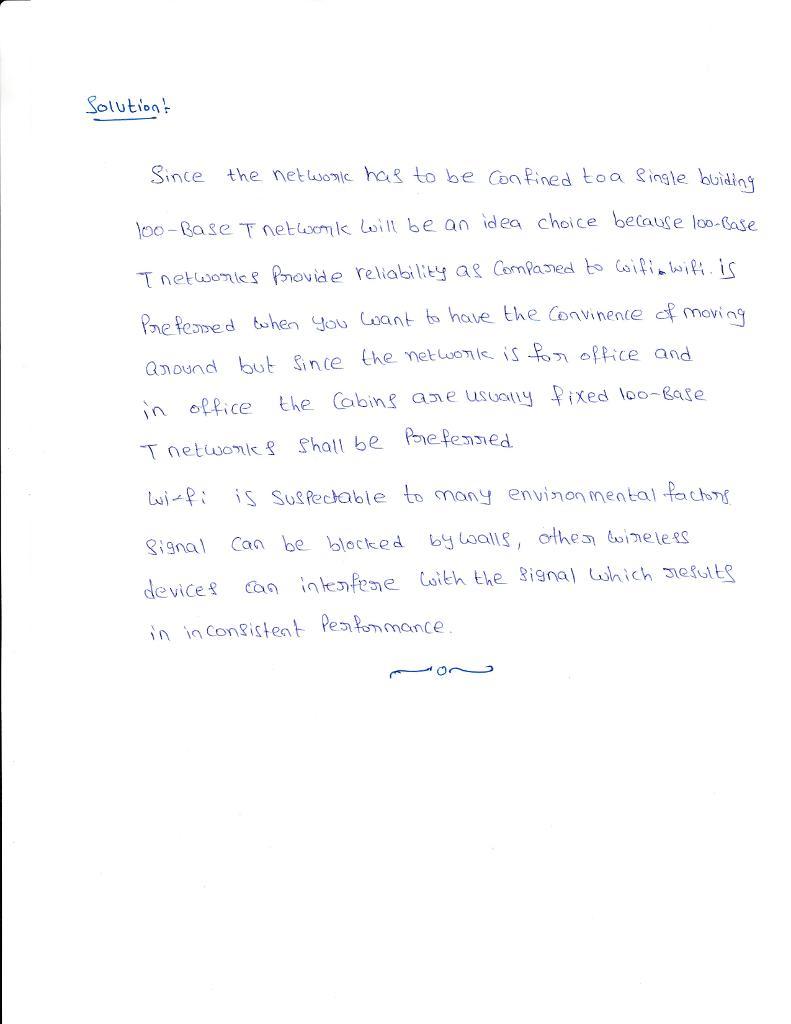 Solution:
Since the network has to be Confined to a Single buiding
100-Base T network will be an idea choice because 100-Base
T networks Provide reliability as Compared to wifi. wifi. is
Preferred when you want to have the Convinence of moving
around but Since the network is for office and
in office the Cabins are usually fixed 100-Base
T networks Shall be Preferred
Wi-fi is Suspectable to many environmental factors
Signal Can be blocked by walls, other wireless
devices can interfere with the Signal which results
in inconsistent Performance.